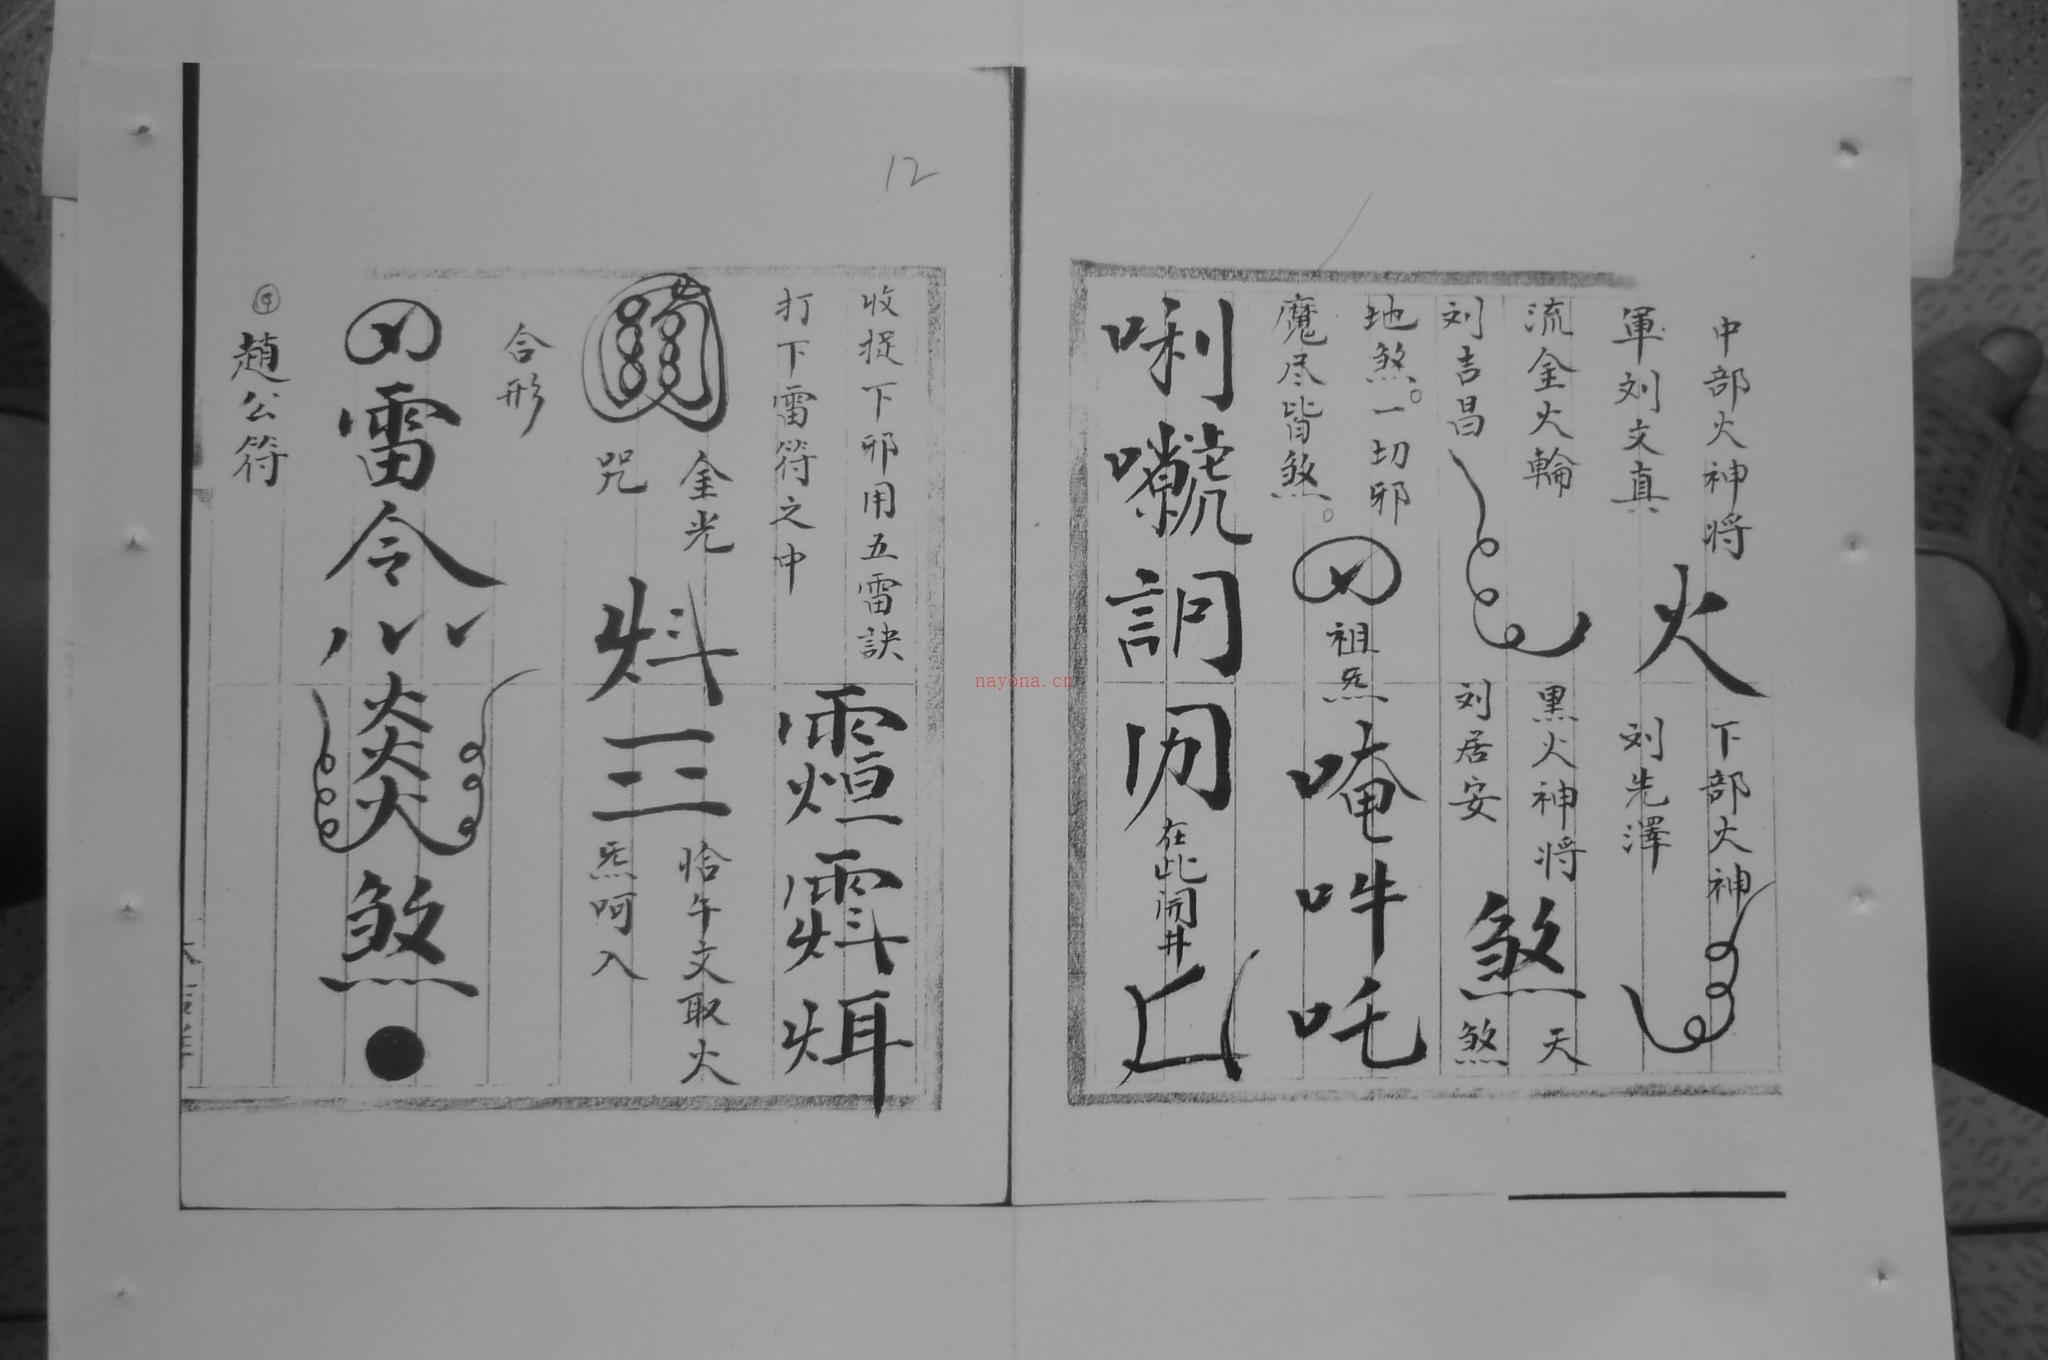 中部火神将
軍刘文真
火
下部火神
刘先澤
流金火輪
刘吉昌
黒火神将
刘居安
煞
天
煞
地煞。一切邪
魔尽皆煞。
祖炁
唵吽吒
唎
在此開井
12
收捉下邪用五雷訣
打下雷符之中
金光
咒
三
恰午文取火
炁呵入
合形
雷令
火火火
煞
⑨趙公符
nayona.cn